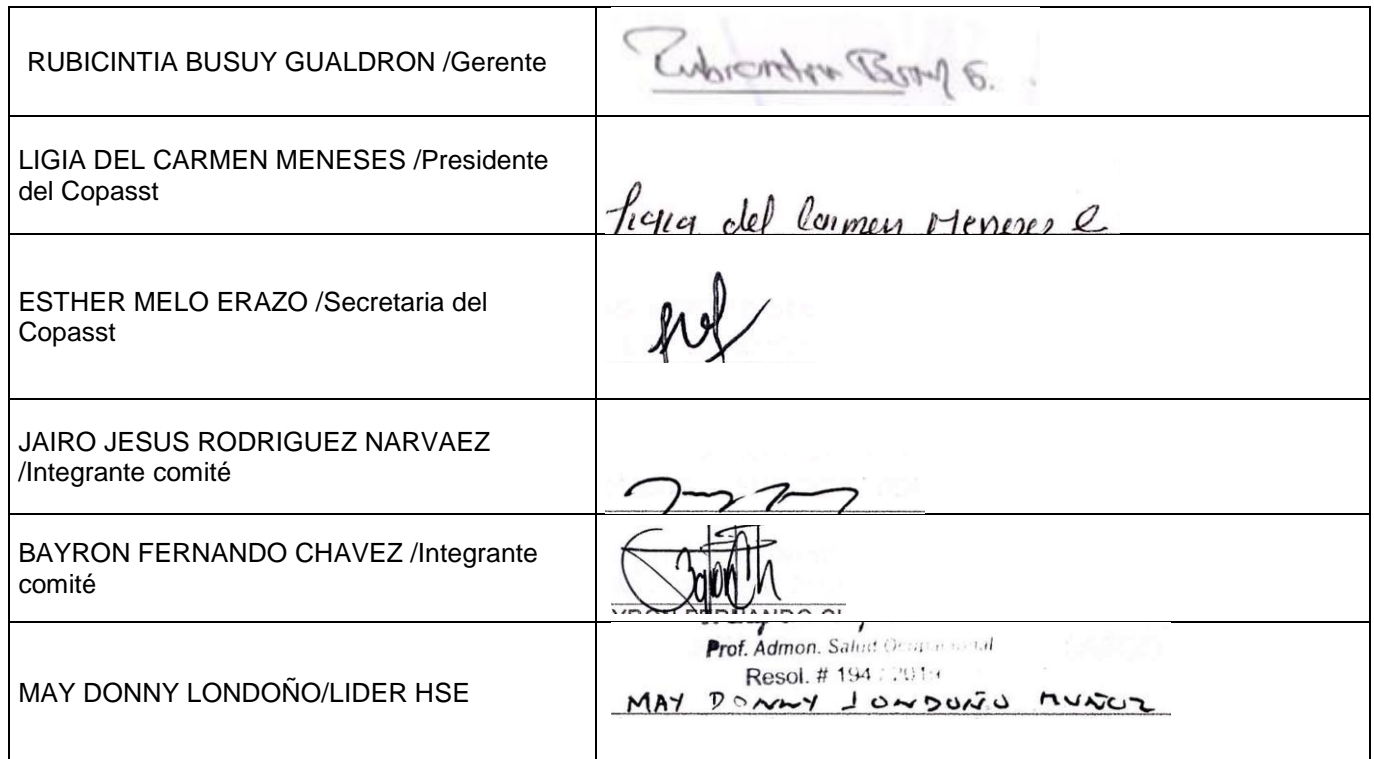 RUBICINTIA BUSUY GUALDRON /Gerente
Rubicintia Busuy G.
LIGIA DEL CARMEN MENESES /Presidente
del Copasst
Ligia del Carmen Meneses
ESTHER MELO ERAZO /Secretaria del
Copasst
JAIRO JESUS RODRIGUEZ NARVAEZ
/Integrante comité
BAYRON FERNANDO CHAVEZ /Integrante
comité
MAY DONNY LONDOÑO/LIDER HSE
Prof. Admon. Salud Ocupacional
Resol. # 194 / 2019
MAY DONNY LONDOÑO MUÑOZ